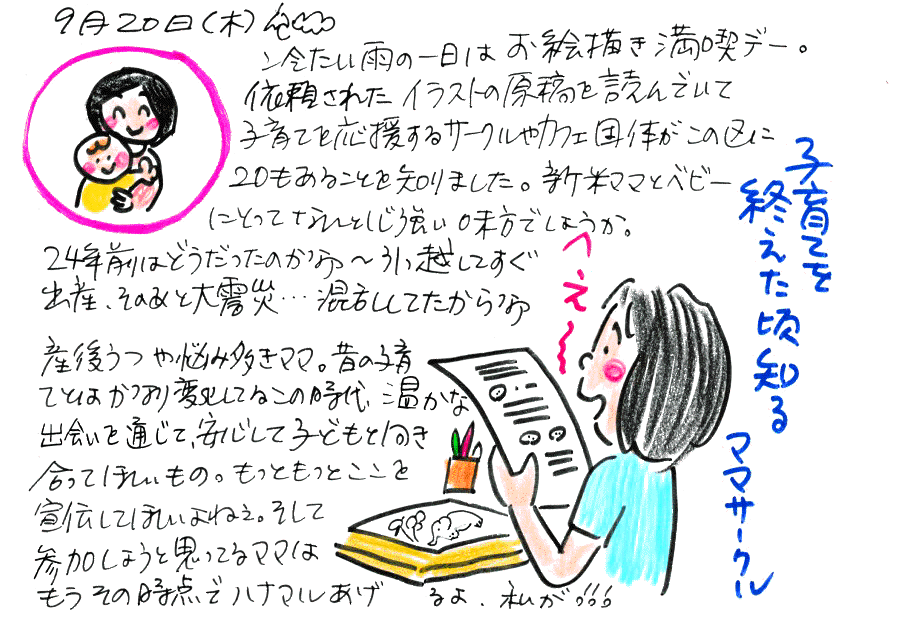 9月20日(木)
冷たい雨の一日はお絵描き満喫デー。
依頼されたイラストの原稿を読んでいて
子育てを応援するサークルやカフェ団体がこの区に
20もあることを知りました。新米ママとベビー
にとってなんと心強い味方でしょうか。
24年前はどうだったのかな〜引越してすぐ
出産、そのあと大震災…混乱してたからな
産後うつや悩み多きママ。昔の子育
てとはかなり変化してるこの時代、温かな
出会いを通じて、安心して子どもと向き
合ってほしいもの。もっともっとここを
宣伝してほしいよねぇ。そして
参加しようと思ってるママは
もうその時点でハナマルあげるよ、私が!!!
へぇ〜
子育てを
終えた頃知る
ママサークル